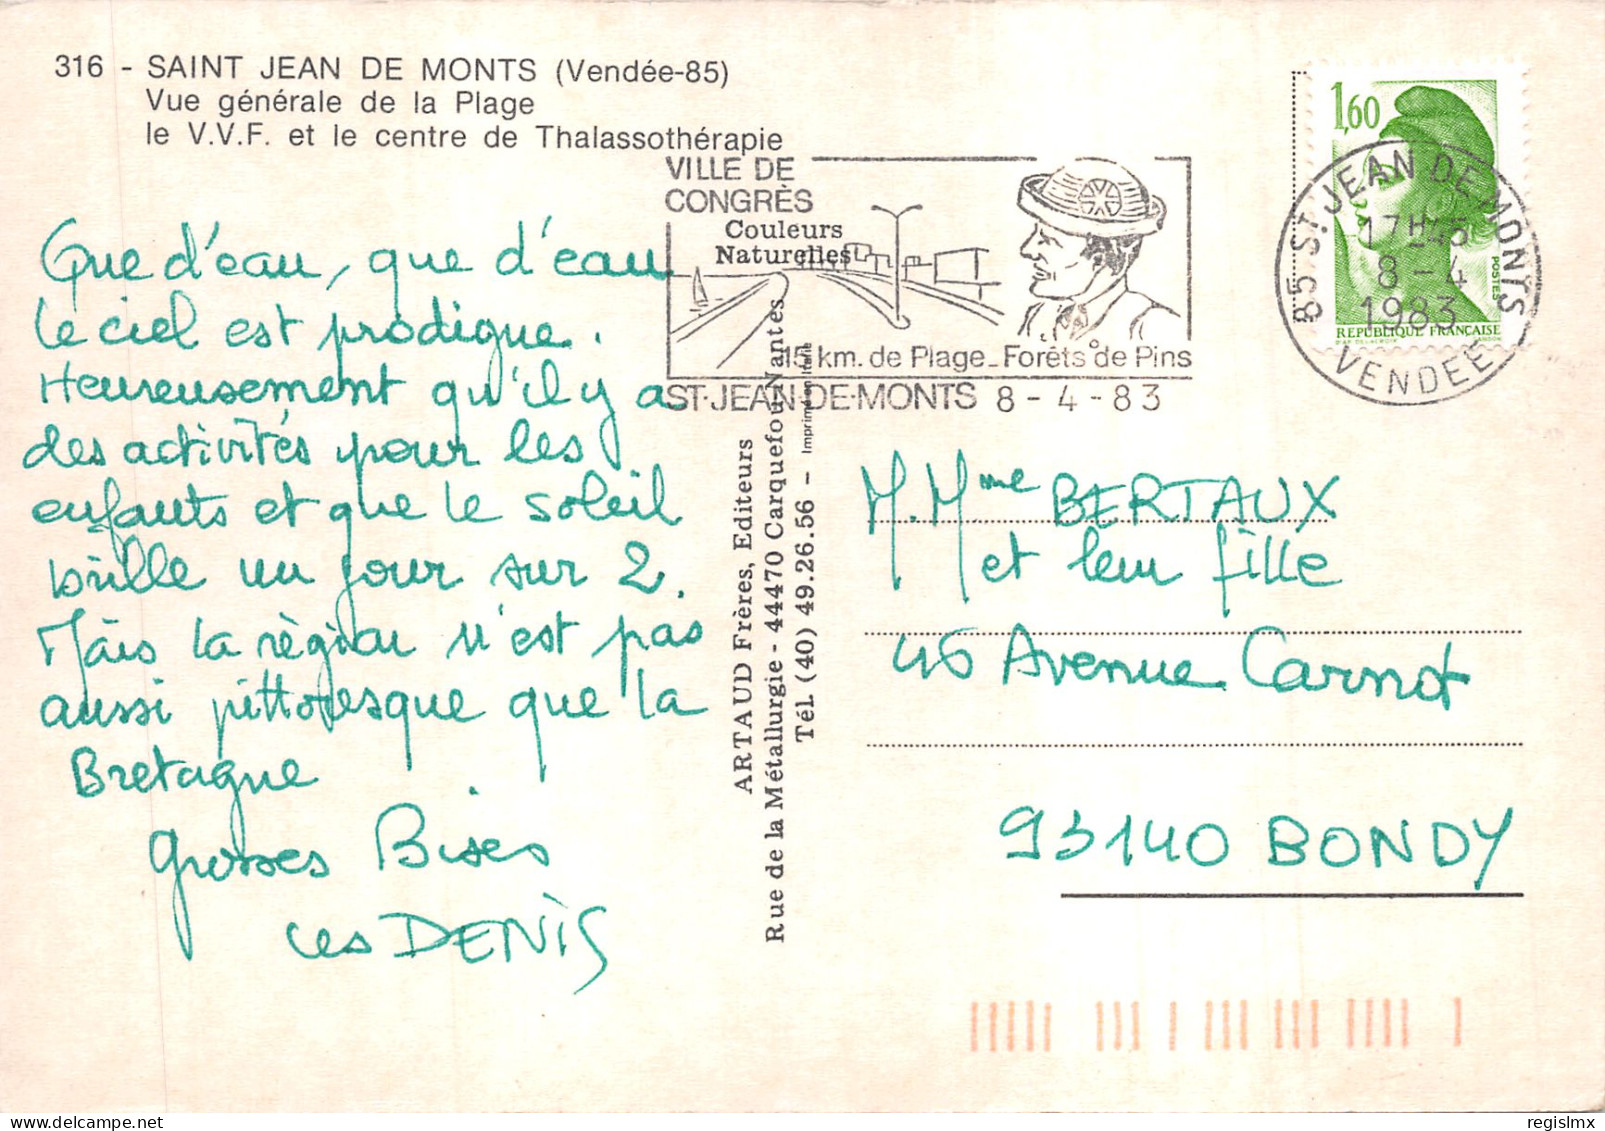 316 - SAINT JEAN DE MONTS (Vendée-85)
Vue générale de la Plage
le V.V.F. et le centre de Thalassothérapie
VILLE DE
CONGRÈS
Couleurs
Naturelles
15 km. de Plage_Forêts de Pins
ST·JEAN·DE·MONTS 8 - 4 - 83
1,60
POSTES
REPUBLIQUE FRANÇAISE
D'AP. DELACROIX GANDON
85 ST JEAN DE MONTS
17H45
8 - 4
1983
VENDEE
Que d'eau, que d'eau
le ciel est prodigue.
Heureusement qu'il y a
des activités pour les
enfants et que le soleil
brille un jour sur 2.
Mais la région n'est pas
aussi pittoresque que la
Bretagne
Grosses Bises
Les DENIS
ARTAUD Frères, Editeurs
Rue de la Métallurgie - 44470 Carquefou-Nantes
Tél. (40) 49.26.56 - Imprimé en Italie
M. Mme BERTAUX
et leur fille
46 Avenue Carnot
93140 BONDY
regislmx